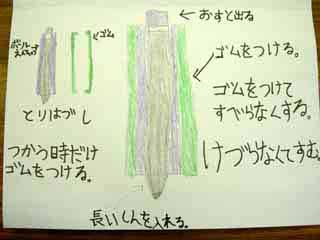 おすと出る
ボール
えんぴつ
ゴム
とりはづし
つかう時だけ
ゴムをつける。
ゴムをつける。
ゴムをつけて
すべらなくする。
けづらなくてすむ。
長いしんを入れる。